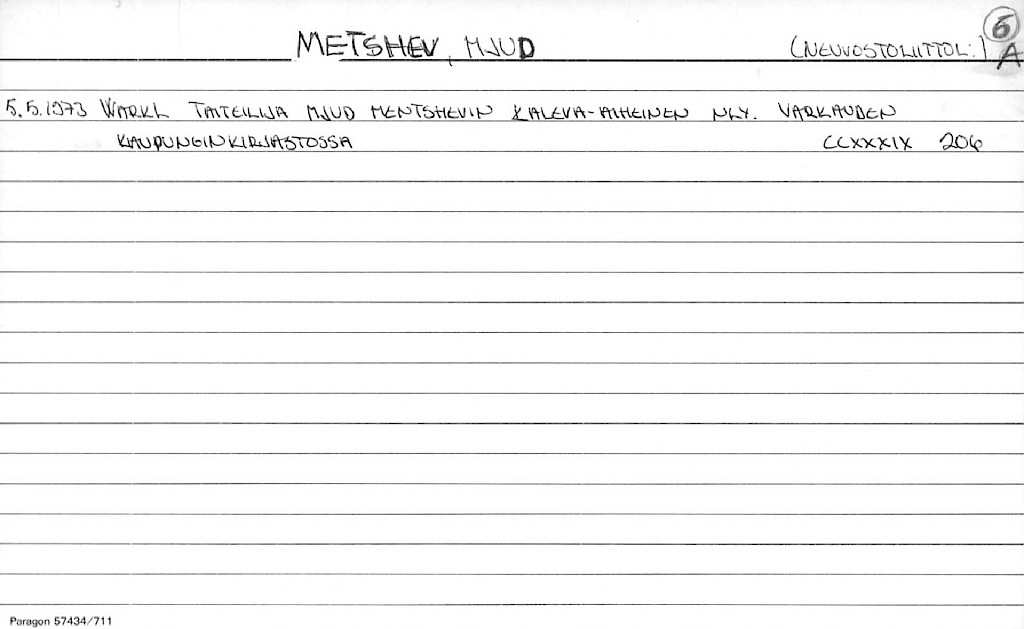 METSHEV, MJUD (NEUVOSTOLIITTOL.) 6
A
5.5.1973 WARKL TAITEILIJA MJUD MENTSHEVIN KALEVA-AIHEINEN NLY. VARKAUDEN
KAUPUNGINKIRJASTOSSA CCXXXIX 206
Paragon 57434/711